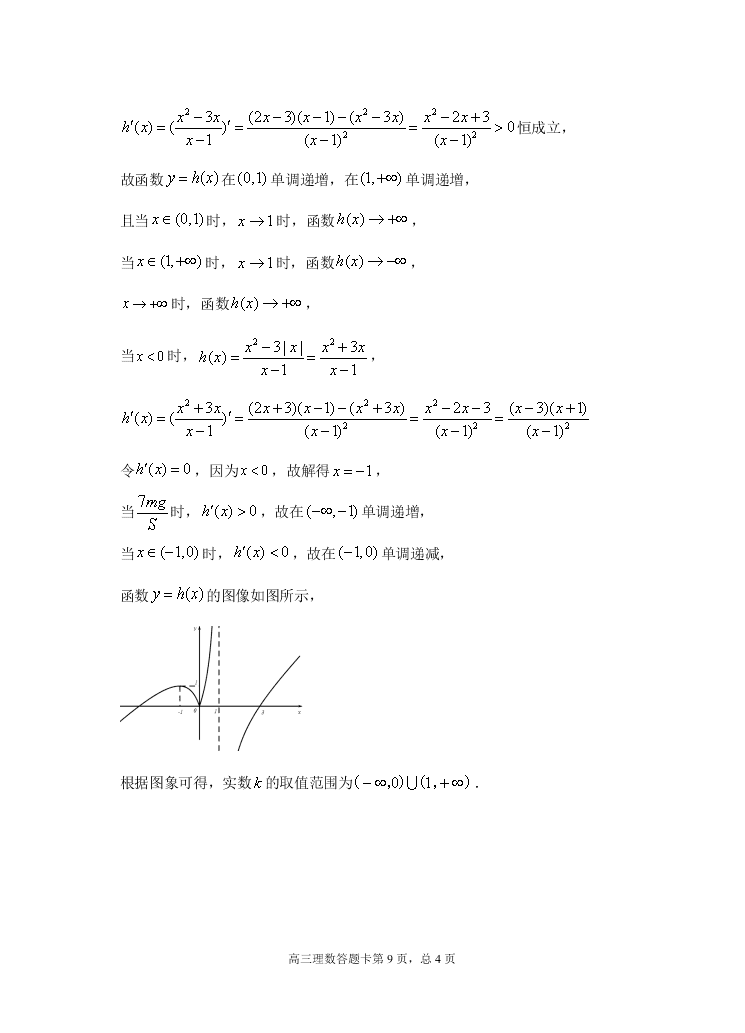 h′(x) = (\frac{x²−3x}{x−1})′ = \frac{(2x−3)(x−1)−(x²−3x)}{(x−1)²} = \frac{x²−2x+3}{(x−1)²} > 0恒成立，
故函数 y = h(x) 在 (0,1) 单调递增，在 (1,+∞) 单调递增，
且当 x ∈ (0,1) 时， x → 1 时，函数 h(x) → +∞ ，
当 x ∈ (1,+∞) 时， x → 1 时，函数 h(x) → −∞ ，
x → +∞ 时，函数 h(x) → +∞ ，
当 x < 0 时， h(x) = \frac{x²−3|x|}{x−1} = \frac{x²+3x}{x−1} ，
h′(x) = (\frac{x²+3x}{x−1})′ = \frac{(2x+3)(x−1)−(x²+3x)}{(x−1)²} = \frac{x²−2x−3}{(x−1)²} = \frac{(x−3)(x+1)}{(x−1)²}
令 h′(x) = 0 ，因为 x < 0 ，故解得 x = −1 ，
当 \frac{7mg}{S} 时， h′(x) > 0 ，故在 (−∞,−1) 单调递增，
当 x ∈ (−1,0) 时， h′(x) < 0 ，故在 (−1,0) 单调递减，
函数 y = h(x) 的图像如图所示，
y
1
-1 0 1 3 x
根据图象可得，实数 k 的取值范围为 (−∞,0)⋃(1,+∞) .
高三理数答题卡第 9 页，总 4 页